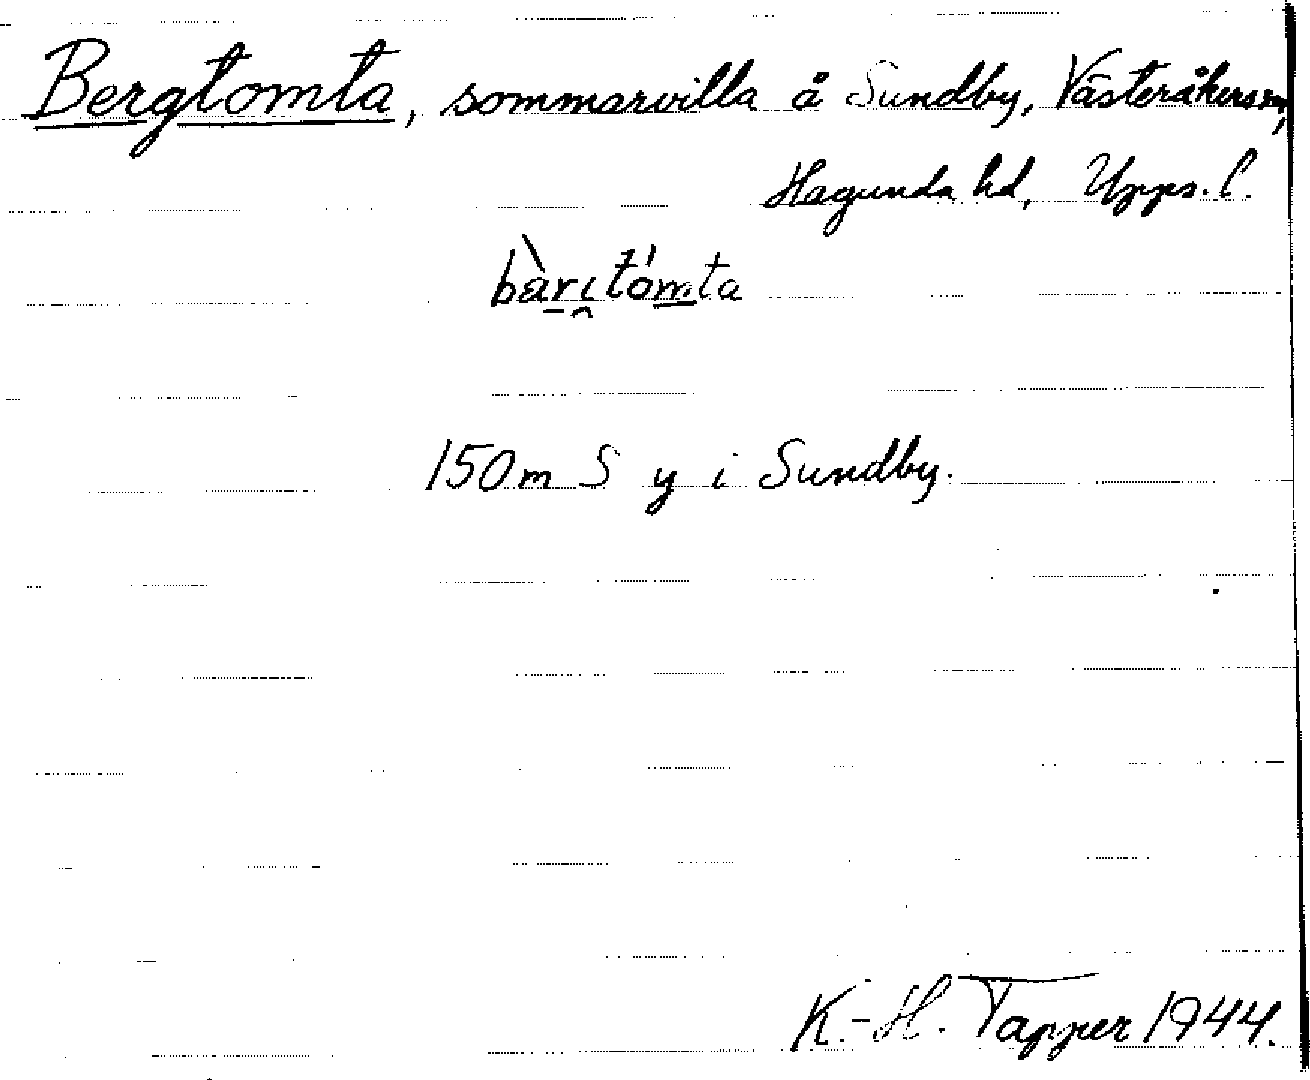 Bergtomta, sommarvilla å Sundby, Västeråkers sn,
Hagunda hd, Upps. l.
bàri̯tómta
150 m S y i Sundby.
K.-H. Tapper 1944.